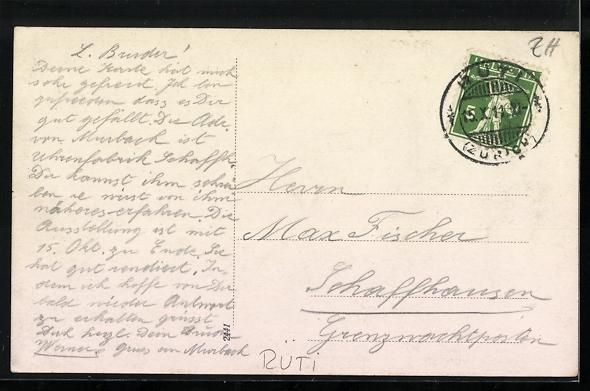 ZH
L. Bruder!
Deine Karte hat mich
sehr gefreut. Ich bin
zufrieden dass es Dir
gut gefällt. Die Adr.
von Murbach ist
Uhrenfabrik Schaffh.
Du kannst ihm schrei
ben u. wirst von ihm
näheres erfahren. Die
Ausstellung ist mit
15. Okt. zu Ende. Sie
hat gut rendiert. In-
dem ich hoffe von Dir
bald wieder Antwort
zu erhalten grüsst
Dich herzl. Dein Bruder
Werner. Gruss an Murbach
HELVETIA
5
RÜTI
5.X.14
(ZÜRICH)
Herrn
Max Fischer
Schaffhausen
Grenzwachtposten
2441
RÜTI